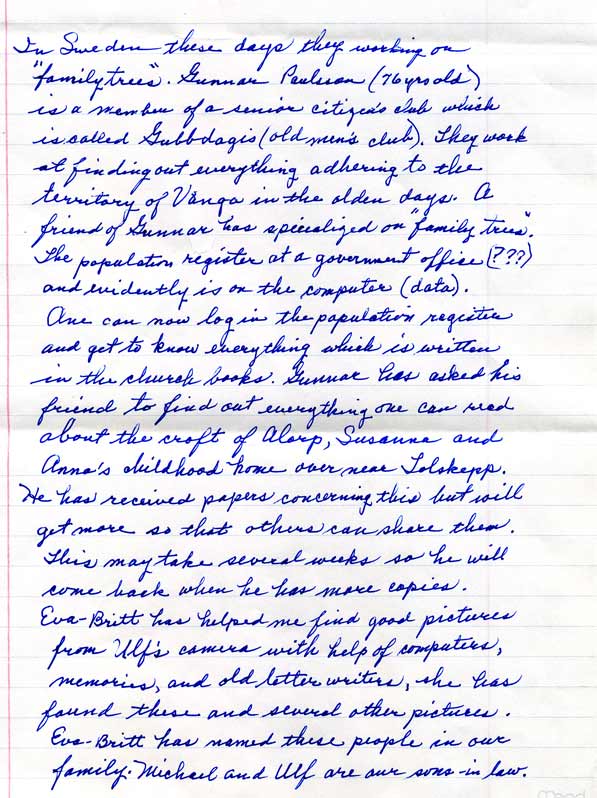 In Sweden these days they working on
"family trees". Gunnar Paulsson (76 yrs old)
is a member of a senior citizen's club which
is called Gubbdagis (old men's club). They work
at finding out everything adhering to the
territory of Vånga in the olden days. A
friend of Gunnar has specialized on "family trees".
The population register at a government office (???)
and evidently is on the computer (data).
One can now log in the population register
and get to know everything which is written
in the church books. Gunnar has asked his
friend to find out everything one can read
about the croft of Alorp, Susanna and
Anna's childhood home over near Tolskepp.
He has received papers concerning this but will
get more so that others can share them.
This may take several weeks so he will
come back when he has more copies.
Eva-Britt has helped me find good pictures
from Ulf's camera with help of computers,
memories, and old letter writers, she has
found these and several other pictures.
Eva-Britt has named these people in our
family. Michael and Ulf are our sons-in law.